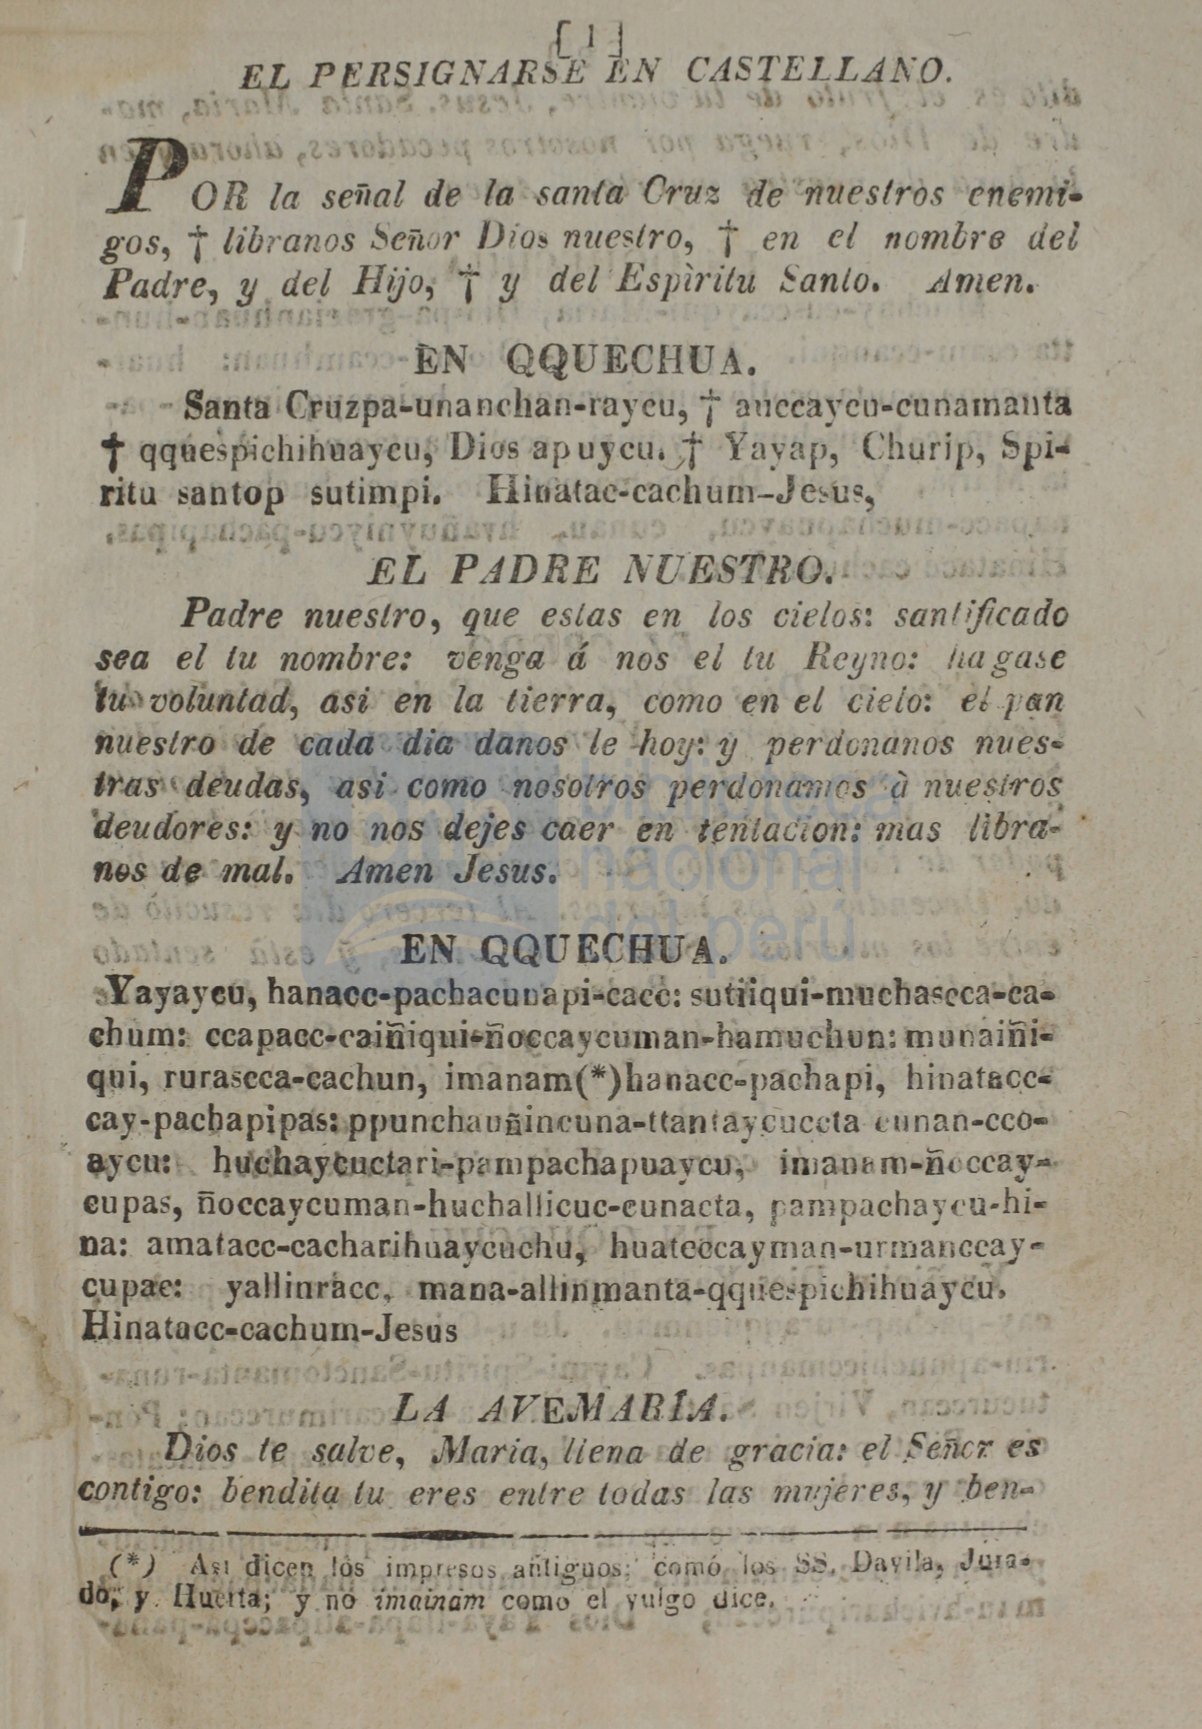 [1]
EL PERSIGNARSE EN CASTELLANO.
POR la señal de la santa Cruz de nuestros enemi-
gos, † libranos Señor Dios nuestro, † en el nombre del
Padre, y del Hijo, † y del Espìritu Santo. Amen.
EN QQUECHUA.
Santa Cruzpa-unanchan-raycu, † auccaycu-cunamanta
† qquespichihuaycu, Dios apuycu. † Yayap, Churip, Spi-
ritu santop sutimpi. Hinatac-cachum-Jesus,
EL PADRE NUESTRO.
Padre nuestro, que estas en los cielos: santificado
sea el tu nombre: venga á nos el tu Reyno: hagase
tu voluntad, asi en la tierra, como en el cielo: el pan
nuestro de cada dia danos le hoy: y perdonanos nues-
tras deudas, asi como nosotros perdonamos à nuestros
deudores: y no nos dejes caer en tentacion: mas libra-
nos de mal. Amen Jesus.
biblioteca
nacional
del perú
EN QQUECHUA.
Yayaycu, hanacc-pachacunapi-cacc: sutiiqui-muchascca-ca-
chum: ccapacc-caiñiqui-ñoccaycuman-hamuchun: munaiñi-
qui, rurascca-cachun, imanam(*)hanacc-pachapi, hinatacc-
cay-pachapipas: ppunchauñincuna-ttantaycuccta cunan-cco-
aycu: huchaycuctari-pampachapuaycu, imanam-ñoccay-
cupas, ñoccaycuman-huchallicuc-cunacta, pampachaycu-hi-
na: amatacc-cacharihuaycuchu, huateccayman-urmanccay-
cupac: yallinracc, mana-allinmanta-qquespichihuaycu.
Hinatacc-cachum-Jesus
LA AVEMARÍA.
Dios te salve, Maria, llena de gracia: el Señor es
contigo: bendita tu eres entre todas las mujeres, y ben-
(*) Asi dicen los impresos antiguos; comó los SS. Davila, Jura-
do, y Huerta; y no imainam como el vulgo dice.